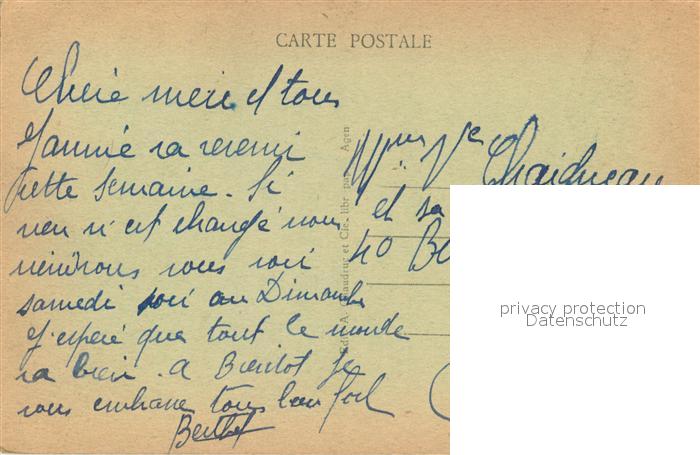 CARTE POSTALE
Chère mère et tous
va revenir
cette semaine. Si
rien n'est changé nous
viendrons vous voir
samedi soir ou Dimanche
J'espère que tout le monde
va bien. a Bientot Je
vous embrasse tous bien fort
Berthe
Mme Vve
et sa
40 B
Edit. A. Chaudrug et Cie, libr pap. Agen
privacy protection
Datenschutz